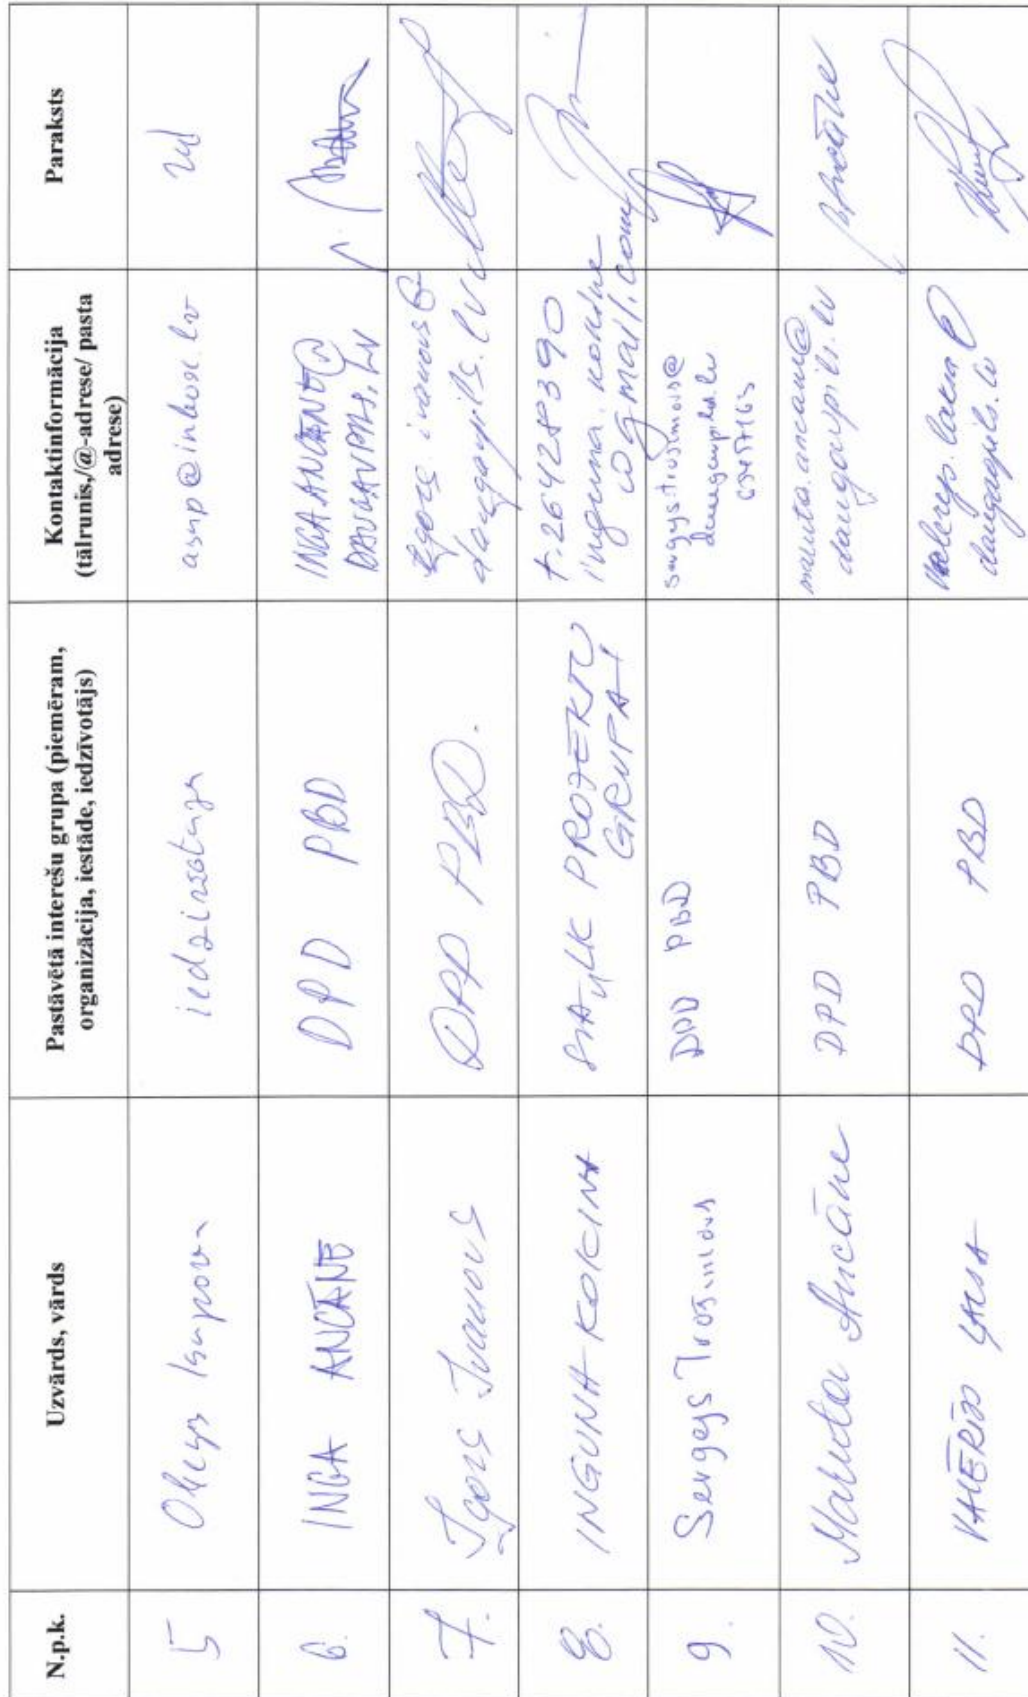 N.p.k. Uzvārds, vārds Pastāvētā interešu grupa (piemēram, organizācija, iestāde, iedzīvotājs) Kontaktinformācija (tālrunis,/@-adrese/ pasta adrese) Paraksts
5 Isupova asup@inbox.lv
6. INGA ANCĀNE DPD PBD INGA.ANCANE@
DAUGAVPILS.LV
7. Igors Ivanovs DPD PBD. igors.ivanovs@
daugavpils.lv
8. INGUNA KOKINA PROJEKTU
GRUPA t. 26428390
inguna.kokina
@gmail.com
9. Sergejs Trosimovs DPD PBD
10. Maruta Ancāne DPD PBD maruta.ancane@
daugavpils.lv Ancāne
11. VALĒRIJS LAKSA DPD PBD
daugavpils.lv